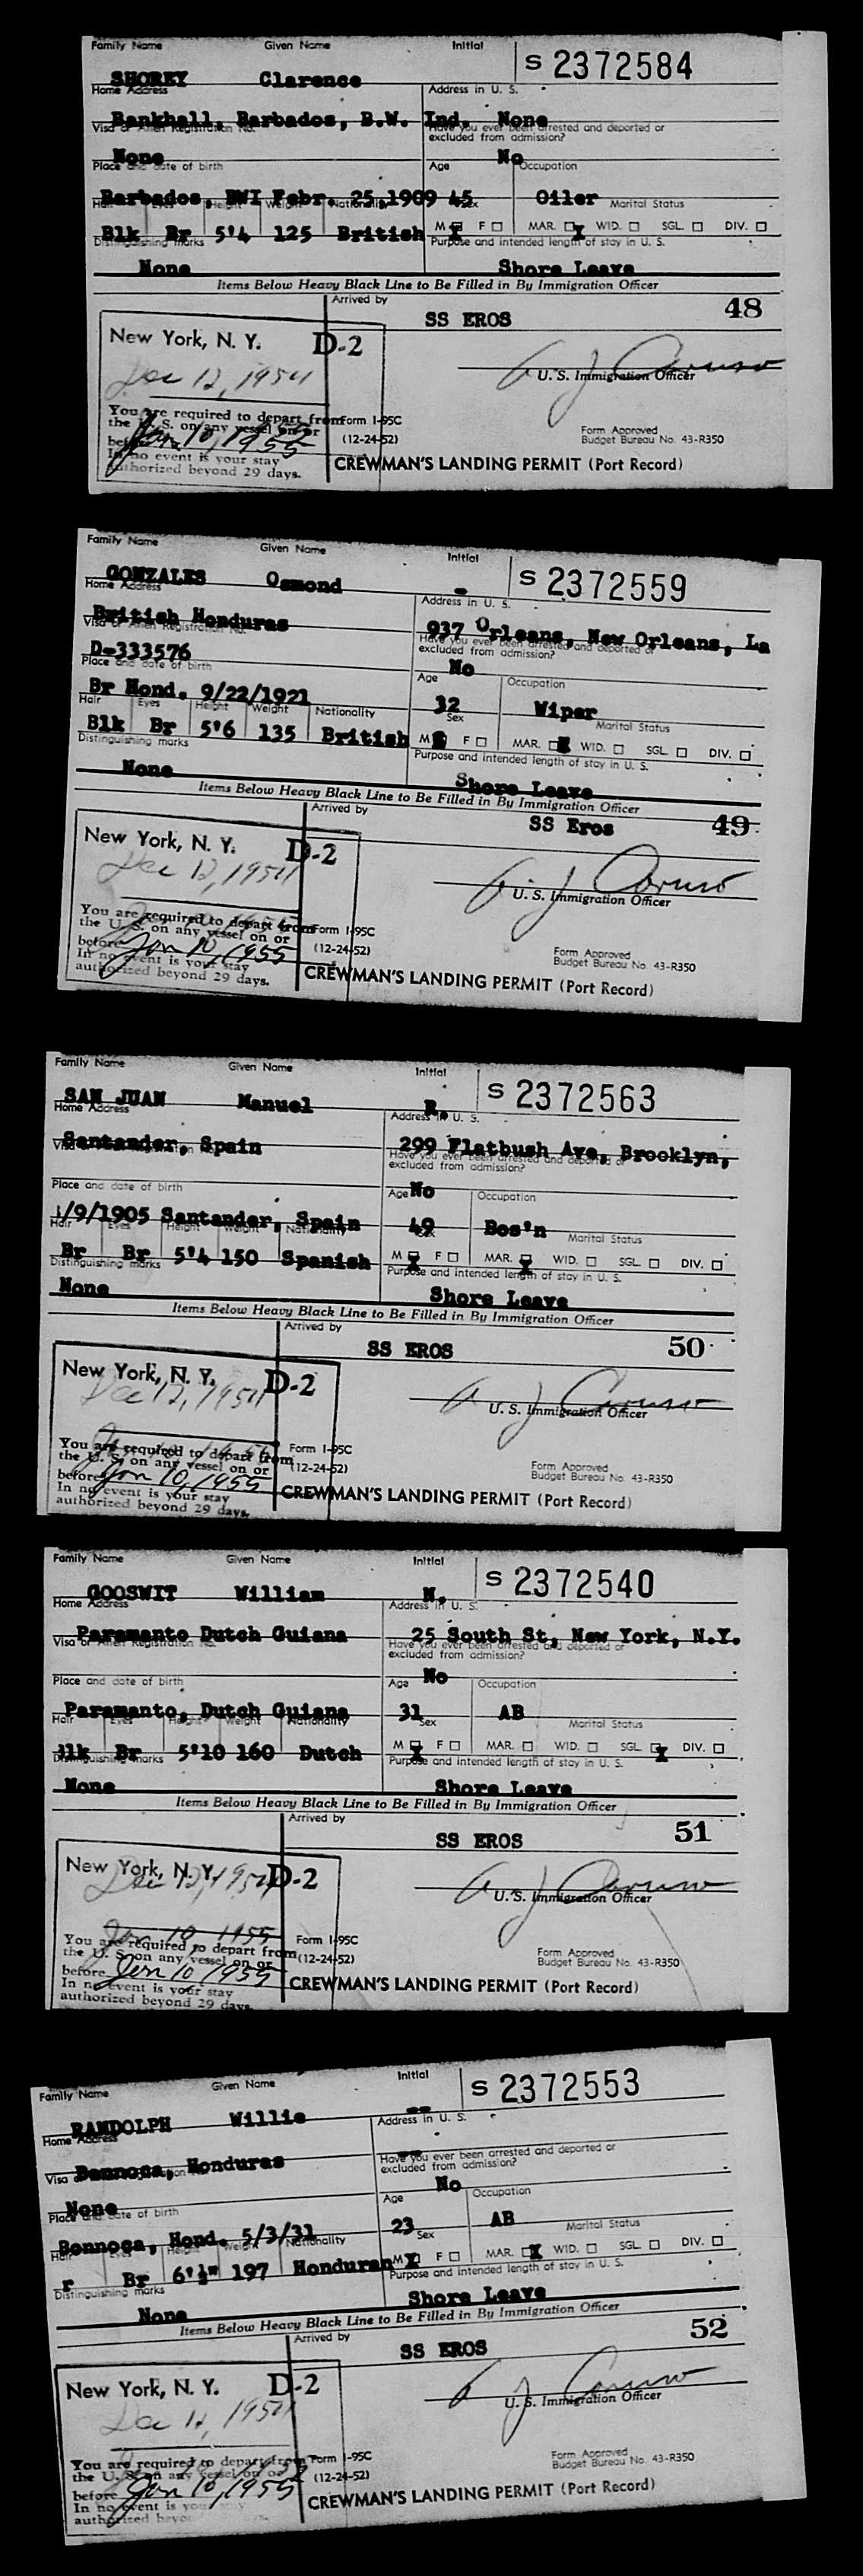 Family Name Given Name Initial S 2372584
SHOREY Clarence
Home Address Address in U. S.
Bankhall, Barbados, B.W. Ind. None
Visa or Alien Registration No. Have you ever been arrested and deported or excluded from admission?
None No
Place and date of birth Age Occupation
Barbados, BWI Febr. 25,1909 45 Oiler
Hair Eyes Height Weight Nationality Sex Marital Status
Blk Br 5'4 125 British M X F MAR. X WID. SGL. DIV.
Distinguishing marks Purpose and intended length of stay in U. S.
None Shore Leave
Items Below Heavy Black Line to Be Filled in By Immigration Officer
Arrived by 48
SS EROS
New York, N. Y. D-2
Dec 12, 1954 U. S. Immigration Officer
You are required to depart from Form I-95C
the U. S. on any vessel on or (12-24-52) Form Approved
before Jan 10, 1955 Budget Bureau No. 43-R350
In no event is your stay
authorized beyond 29 days. CREWMAN'S LANDING PERMIT (Port Record)
Family Name Given Name Initial S 2372559
GONZALES Osmond -
Home Address Address in U. S.
British Honduras 937 Orleans, New Orleans, La
Visa or Alien Registration No. Have you ever been arrested and deported or excluded from admission?
D-333576 No
Place and date of birth Age Occupation
Br Hond. 9/22/1921 32 Wiper
Hair Eyes Height Weight Nationality Sex Marital Status
Blk Br 5'6 135 British M F MAR. WID. SGL. DIV.
Distinguishing marks Purpose and intended length of stay in U. S.
None Shore Leave
Items Below Heavy Black Line to Be Filled in By Immigration Officer
Arrived by SS Eros 49
New York, N. Y. D-2
Dec 12, 1954 A. J. Caruso
U. S. Immigration Officer
You are required to depart from Form I-95C
the U. S. on any vessel on or (12-24-52) Form Approved
before Jan 10, 1955 Budget Bureau No. 43-R350
In no event is your stay
authorized beyond 29 days. CREWMAN'S LANDING PERMIT (Port Record)
Family Name Given Name Initial S 2372563
SAN JUAN Manuel R.
Home Address Address in U. S.
Santander, Spain 299 Flatbush Ave, Brooklyn,
Have you ever been arrested and deported or excluded from admission?
Place and date of birth Age No Occupation
1/9/1905 Santander, Spain 49 Bos'n
Hair Eyes Height Weight Nationality Sex Marital Status
Br Br 5'4 150 Spanish M X F MAR. X WID. SGL. DIV.
Distinguishing marks Purpose and intended length of stay in U. S.
None Shore Leave
Items Below Heavy Black Line to Be Filled in By Immigration Officer
Arrived by SS EROS 50
New York, N. Y. D-2
Dec 12, 1954 U. S. Immigration Officer
You are required to depart from Form I-95C
the U. S. on any vessel on or (12-24-52) Form Approved
before Jan 10, 1955 Budget Bureau No. 43-R350
In no event is your stay
authorized beyond 29 days. CREWMAN'S LANDING PERMIT (Port Record)
Family Name Given Name Initial S 2372540
GOOSWIT William N.
Home Address Address in U. S.
Paramanto Dutch Guiana 25 South St, New York, N.Y.
Visa or Alien Registration No. Have you ever been arrested and deported or excluded from admission?
No
Place and date of birth Age Occupation
Paramanto, Dutch Guiana 31 AB
Hair Eyes Height Weight Nationality Sex Marital Status
Blk Br 5'10 160 Dutch M X F MAR. WID. SGL. X DIV.
Distinguishing marks Purpose and intended length of stay in U. S.
None Shore Leave
Items Below Heavy Black Line to Be Filled in By Immigration Officer
Arrived by SS EROS 51
New York, N. Y. D-2
Dec 12, 1954 U. S. Immigration Officer
Jan 10 1955
You are required to depart from Form I-95C
the U. S. on any vessel on or (12-24-52) Form Approved
before Jan 10 1955 Budget Bureau No. 43-R350
In no event is your stay
authorized beyond 29 days. CREWMAN'S LANDING PERMIT (Port Record)
Family Name Given Name Initial S 2372553
RANDOLPH Willie --
Home Address Address in U. S.
Bonnoca, Honduras --
Visa Have you ever been arrested and deported or excluded from admission?
None No
Place and date of birth Age Occupation
Bonnoca, Hond. 5/3/31 23 AB
Hair Eyes Height Weight Nationality Sex Marital Status
r Br 6'½" 197 Honduran M X F MAR. X WID. SGL. DIV.
Distinguishing marks Purpose and intended length of stay in U. S.
None Shore Leave
Items Below Heavy Black Line to Be Filled in By Immigration Officer
Arrived by SS EROS 52
New York, N. Y. D-2
Dec 12, 1954 U. S. Immigration Officer
You are required to depart from Form I-95C
the U. S. on any vessel on or (12-24-52) Form Approved
before Jan 10, 1955 Budget Bureau No. 43-R350
In no event is you
authorized beyo CREWMAN'S LANDING PERMIT (Port Record)